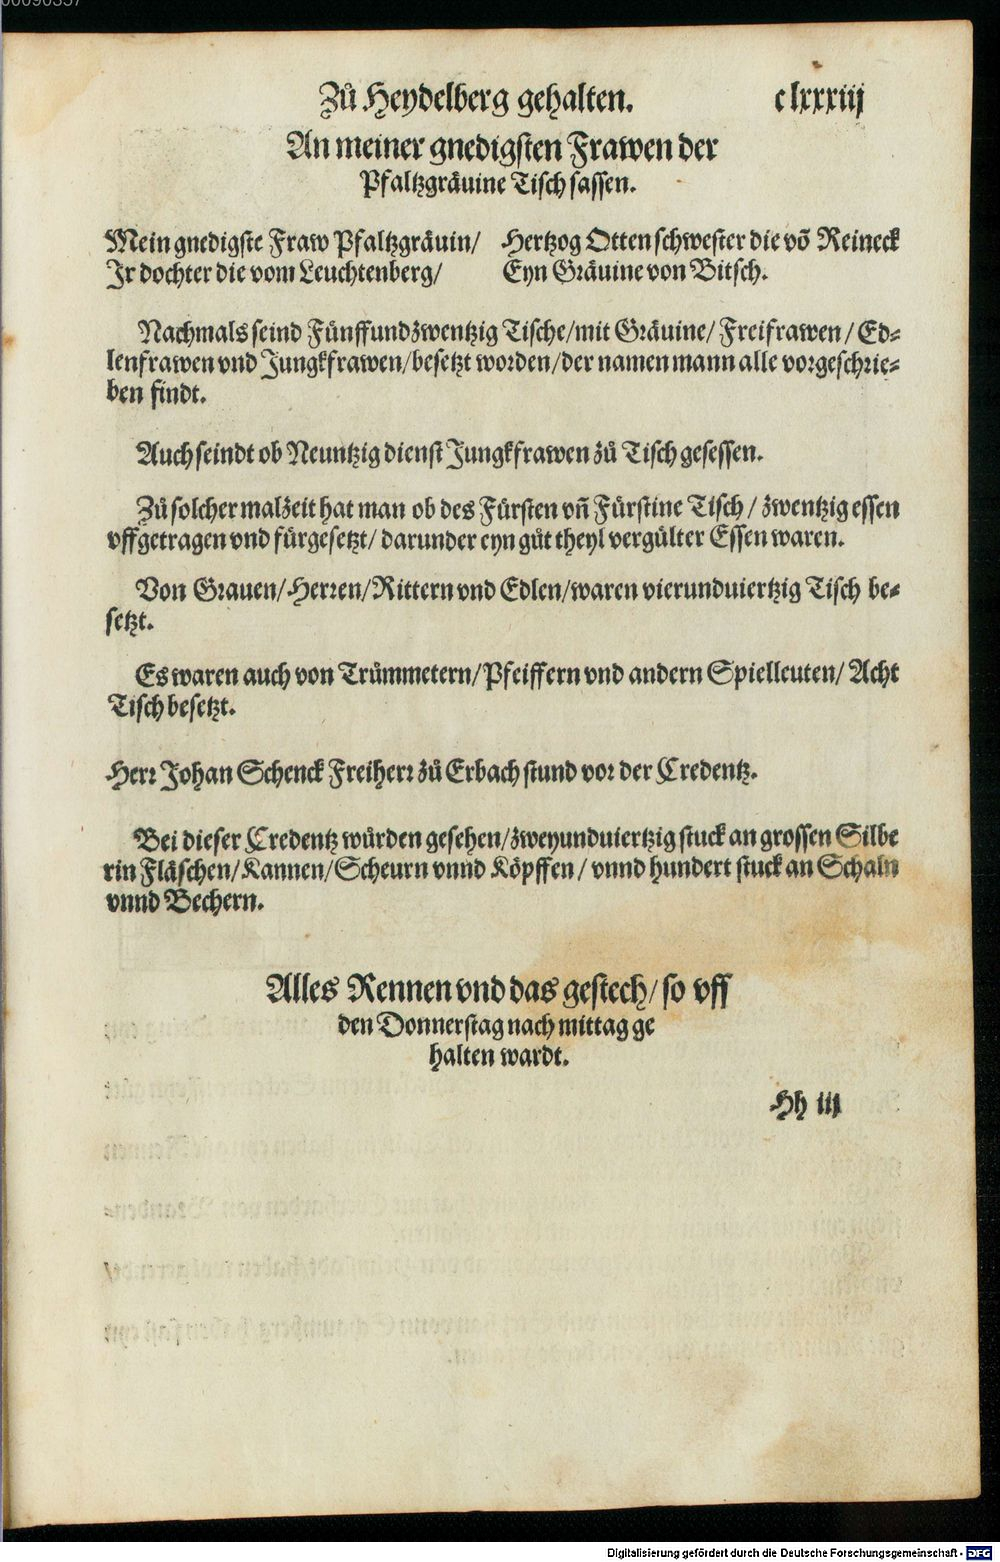 00090357
Zů Heydelberg gehalten. clxxxiij
An meiner gnedigsten Frawen der
Pfaltzgräuine Tisch sassen.
Mein gnedigste Fraw Pfaltzgräuin/ Hertzog Otten schwester die võ Reineck
Ir dochter die vom Leuchtenberg/ Eyn Gräuine von Bitsch.
Nachmals seind Fünffundzwentzig Tische/mit Gräuine/ Freifrawen/ Ed-
lenfrawen vnd Jungkfrawen/besetzt worden/der namen mann alle vorgeschrie-
ben findt.
Auch seindt ob Neuntzig dienst Jungkfrawen zů Tisch gesessen.
Zů solcher malzeit hat man ob des Fürsten vñ Fürstine Tisch/ zwentzig essen
vffgetragen vnd fürgesetzt/ darunder eyn gůt theyl vergülter Essen waren.
Von Grauen/Herren/Rittern vnd Edlen/waren vierunduiertzig Tisch be-
setzt.
Es waren auch von Trůmmetern/Pfeiffern vnd andern Spielleuten/ Acht
Tisch besetzt.
Herr Johan Schenck Freiherr zů Erbach stund vor der Credentz.
Bei dieser Credentz würden gesehen/zweyunduiertzig stuck an grossen Silbe
rin Fläschen/Kannen/Scheurn vnnd Köpffen/ vnnd hundert stuck an Schaln
vnnd Bechern.
Alles Rennen vnd das gestech/ so vff
den Donnerstag nach mittag ge
halten wardt.
Hh iij
Digitalisierung gefördert durch die Deutsche Forschungsgemeinschaft - DFG